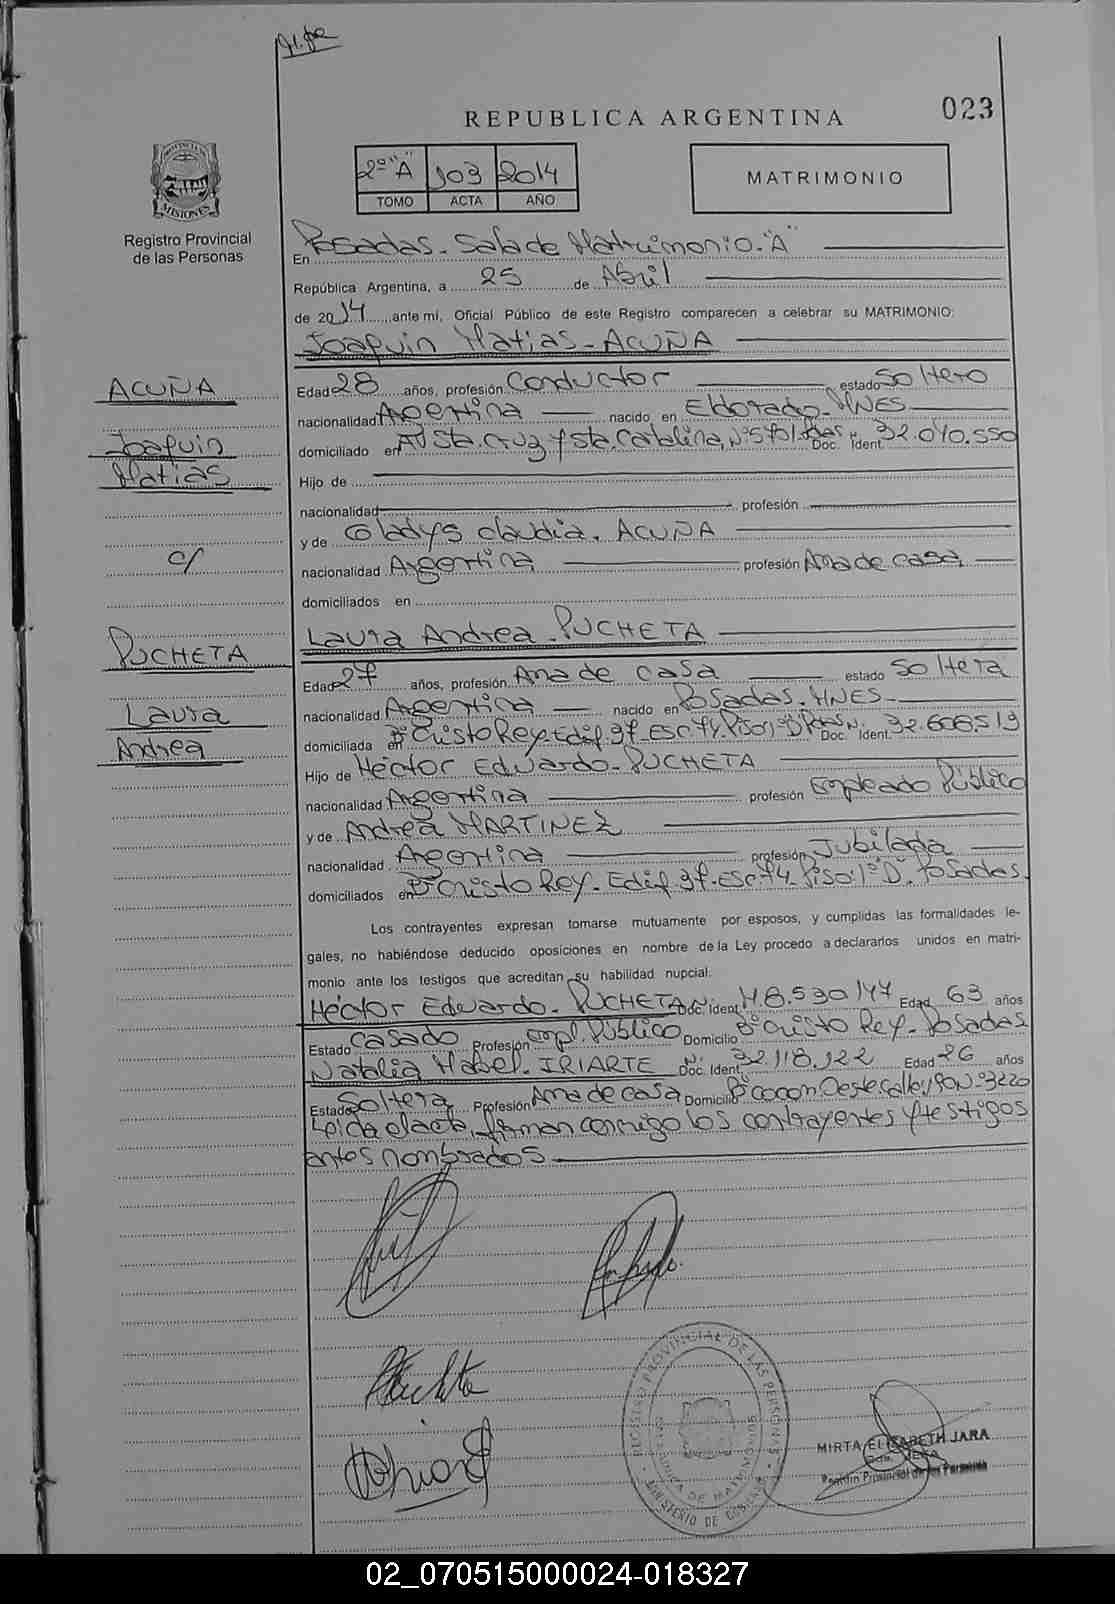 023
REPUBLICA ARGENTINA
2º "A" 103 2014
TOMO ACTA AÑO
MATRIMONIO
PROVINCIA DE
MISIONES
Registro Provincial
de las Personas
En Posadas - Sala de Matrimonio - "A"
República Argentina, a 25 de Abril
de 2014 ante mi, Oficial Público de este Registro comparecen a celebrar su MATRIMONIO:
Joaquin Matias - ACUÑA
ACUÑA
Joaquin
Matias
c/
PUCHETA
Laura
Andrea
Edad 28 años, profesión Conductor estado Soltero
nacionalidad Argentina nacido en Eldorado - MNES
domiciliado en Av Sta. Cruz y Sta. Catalina, Nº 5701 Pdas Doc. N. Ident. 32.010.550
Hijo de
nacionalidad profesión
y de Gladys Claudia. ACUÑA
nacionalidad Argentina profesión Ama de casa
domiciliados en
Laura Andrea - PUCHETA
Edad 27 años, profesión Ama de casa estado Soltera
nacionalidad Argentina nacido en Posadas. MNES
domiciliada en Bº Cristo Rey. Edif. 37. Esc. 74. Piso 1º "D" Pdas Doc. N. Ident. 32.608.519
Hijo de Héctor Eduardo - PUCHETA
nacionalidad Argentina profesión Empleado Público
y de Andrea MARTINEZ
nacionalidad Argentina profesión Jubilada
domiciliados en Bº Cristo Rey. Edif 37. Esc. 74. Piso: 1º "D". Posadas
Los contrayentes expresan tomarse mutuamente por esposos, y cumplidas las formalidades le-
gales, no habiéndose deducido oposiciones en nombre de la Ley procedo a declararlos unidos en matri-
monio ante los testigos que acreditan su habilidad nupcial:
Héctor Eduardo - PUCHETA Doc. N. Ident M.8.530.147 Edad 63 años
Estado Casado Profesión Empl. Público Domicilio Bº Cristo Rey - Posadas
Natalia Mabel - IRIARTE Doc. N. Ident. 32.118.122 Edad 26 años
Estado Soltera Profesión Ama de casa Domicilio Bº Cocomarola Oeste Calle 190 Nº 3220
Leida el acta, firman conmigo los contrayentes y testigos
antes nombrados
REGISTRO PROVINCIAL DE LAS PERSONAS
MINISTERIO DE GOBIERNO
MIRTA ELIZABETH JARA
Registro Provincial de las Personas
02_070515000024-018327